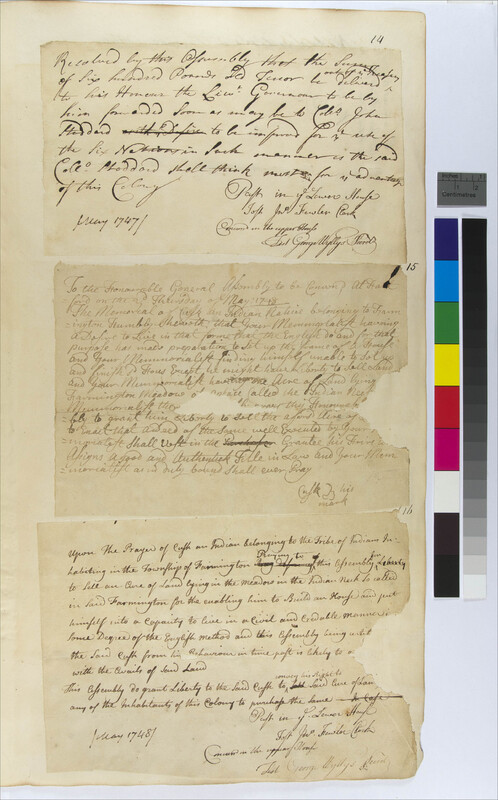 14
Resolved by this Assembly that the Summ
of Six hundred Pounds Old Tenor be delivered
out of ye Treasury
to his Honour the Lieut Governour to be by
him forwarded Soon as may be to Colo John
Stoddard to be improved for ye use of
the Six Nations in Such manner as the said
Collo Stoddard Shall think most for ye advantage
of this Colony
Past in ye Lower House
Test Jno Fowler Clerk
[May 1747]
Concurrd in the upper House
Test George Wyllys Secret
15
To the Honourable General Assembly to be Conven'd At Hart
ford on the 2d Thursday of May 1748
The Memorial of Cusk an Indian Native belonging to Farm
ington Humbly Sheweth that Your Memmorialist having
A Desire to Live in that form that the English do and for that
purpose has made preparation to Set up the frame of A House
and Your Memmorialist finding himself unable to Set up
and finish Sd House Except he might have Liberty to Sell Land
and Your Memmorialist has one Acre of Land lying
Farmington Meadow att A place Called the Indian Neck
Memmorialist
ty to grant him Liberty to Sell the aforesd Acre of
to Direct that A Deed of the Same well Executed by Your
morialist Shall Vest in the Grantee his heirs
Assigns A good and Authentick Title in Law and Your Mem
morialist as in duty bound Shall ever Pray
Cusk his
mark
16
Upon The Prayer of Cusk an Indian belonging to the Tribe of Indians In-
habiting in the Township of Farmington
Praying to
this Assembly for Liberty
to Sell an Acre of Land lying in the Meadow in the Indian Neck So called
in Said Farmington for the enabling him to Build an House and put
himself into a Capacity to live in a Civil and Credable manner in
Some Degree of the English method and this Assembly being
the Said Cusk from his Behaviour in time past is likely to
with the Avails of Said Land
This Assembly do grant Liberty to the Said Cusk to
convey an Right to
Said Acre of Land
any of the Inhabitants of this Colony to purchase the Same
Past in ye Lower House
Test Jno Fowler Clerk
[May 1748]
Concurrd in the upper House
Test George Wyllys Secret
Centimetres